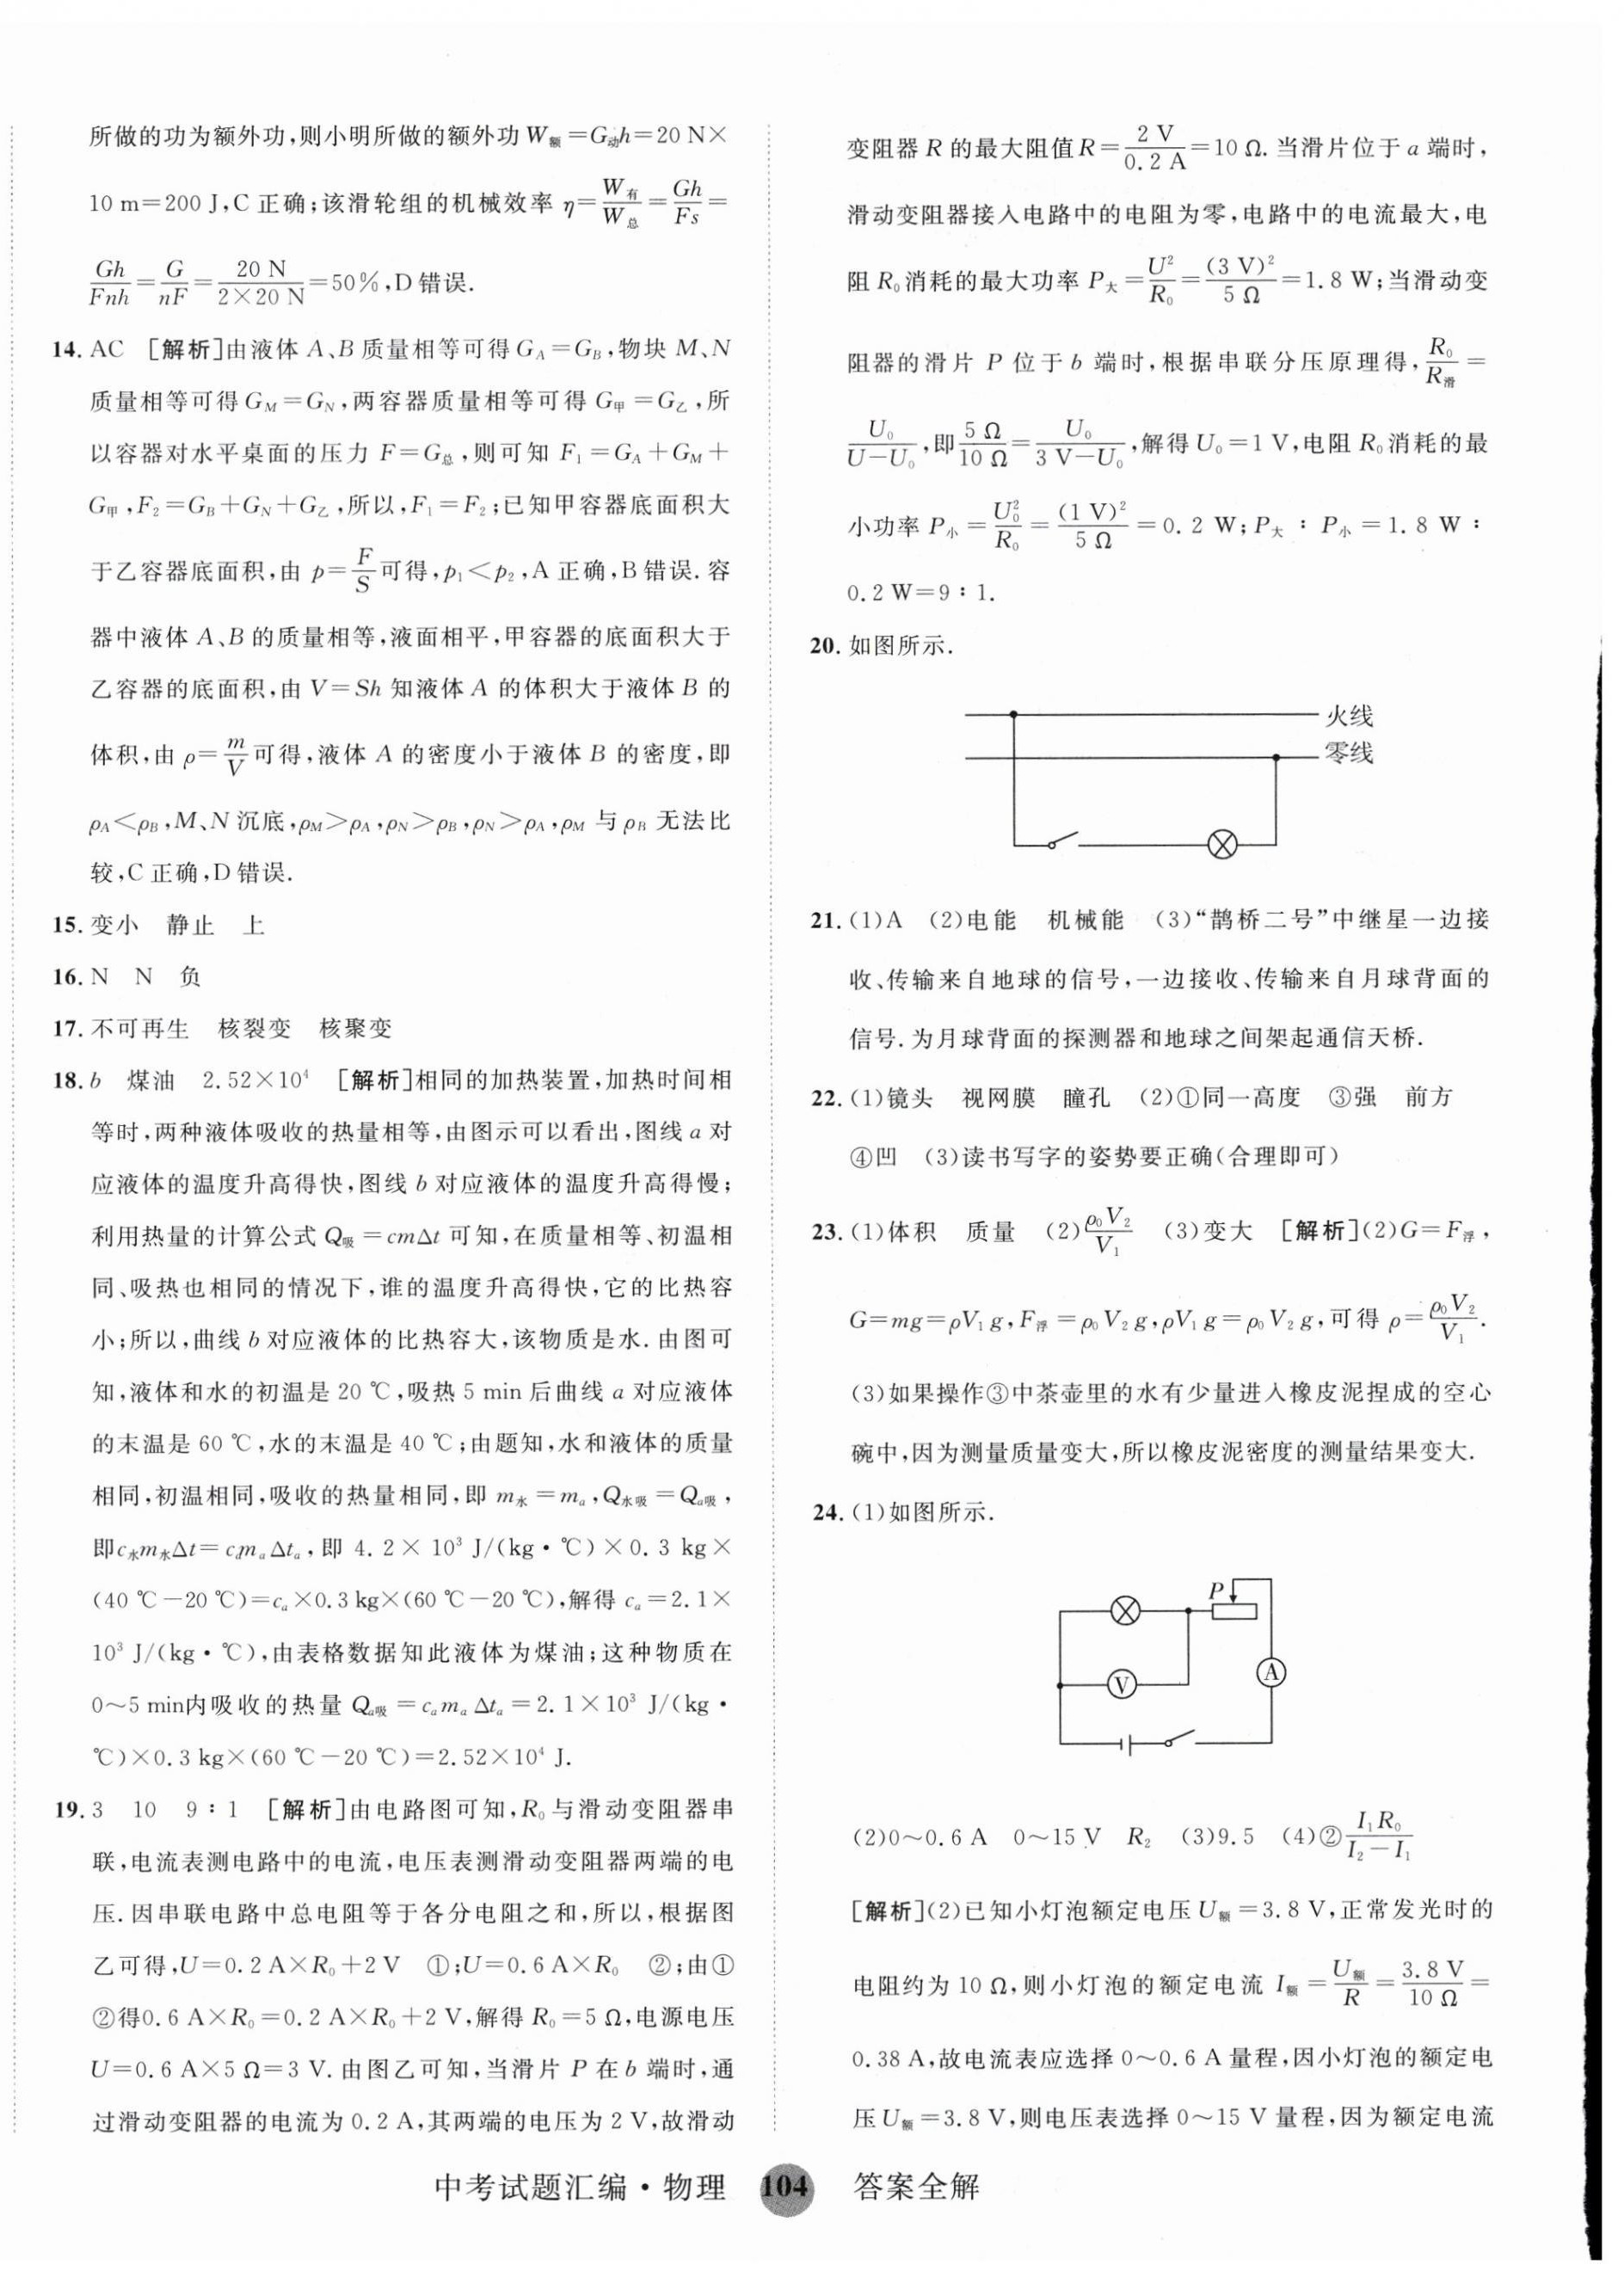 所做的功为额外功,则小明所做的额外功 W额=G动h=20 N×
10 m=200 J,C 正确;该滑轮组的机械效率 η=W有/W总=Gh/Fs=
Gh/Fnh=G/nF=20 N/(2×20 N)=50%,D 错误.
14. AC [解析]由液体 A、B 质量相等可得 G_A=G_B,物块 M、N
质量相等可得 G_M=G_N,两容器质量相等可得 G甲=G乙,所
以容器对水平桌面的压力 F=G总,则可知 F₁=G_A+G_M+
G甲,F₂=G_B+G_N+G乙,所以,F₁=F₂;已知甲容器底面积大
于乙容器底面积,由 p=F/S可得,p₁<p₂,A 正确,B 错误.容
器中液体 A、B 的质量相等,液面相平,甲容器的底面积大于
乙容器的底面积,由 V=Sh 知液体 A 的体积大于液体 B 的
体积,由 ρ=m/V可得,液体 A 的密度小于液体 B 的密度,即
ρ_A<ρ_B,M、N 沉底,ρ_M>ρ_A,ρ_N>ρ_B,ρ_N>ρ_A,ρ_M 与 ρ_B 无法比
较,C 正确,D 错误.
15. 变小 静止 上
16. N N 负
17. 不可再生 核裂变 核聚变
18. b 煤油 2.52×10⁴ [解析]相同的加热装置,加热时间相
等时,两种液体吸收的热量相等,由图示可以看出,图线 a 对
应液体的温度升高得快,图线 b 对应液体的温度升高得慢;
利用热量的计算公式 Q吸=cmΔt 可知,在质量相等、初温相
同、吸热也相同的情况下,谁的温度升高得快,它的比热容
小;所以,曲线 b 对应液体的比热容大,该物质是水.由图可
知,液体和水的初温是 20 ℃,吸热 5 min 后曲线 a 对应液体
的末温是 60 ℃,水的末温是 40 ℃;由题知,水和液体的质量
相同,初温相同,吸收的热量相同,即 m水=mₐ,Q水吸=Qₐ吸,
即c水m水Δt=cₐmₐΔtₐ,即 4.2×10³ J/(kg·℃)×0.3 kg×
(40 ℃-20 ℃)=cₐ×0.3 kg×(60 ℃-20 ℃),解得 cₐ=2.1×
10³ J/(kg·℃),由表格数据知此液体为煤油;这种物质在
0～5 min内吸收的热量 Qₐ吸=cₐmₐΔtₐ=2.1×10³ J/(kg·
℃)×0.3 kg×(60 ℃-20 ℃)=2.52×10⁴ J.
19. 3 10 9∶1 [解析]由电路图可知,R₀与滑动变阻器串
联,电流表测电路中的电流,电压表测滑动变阻器两端的电
压.因串联电路中总电阻等于各分电阻之和,所以,根据图
乙可得,U=0.2 A×R₀+2 V ①;U=0.6 A×R₀ ②;由①
②得0.6 A×R₀=0.2 A×R₀+2 V,解得 R₀=5 Ω,电源电压
U=0.6 A×5 Ω=3 V.由图乙可知,当滑片 P 在 b 端时,通
过滑动变阻器的电流为 0.2 A,其两端的电压为 2 V,故滑动
变阻器 R 的最大阻值R=2 V/0.2 A=10 Ω.当滑片位于 a 端时,
滑动变阻器接入电路中的电阻为零,电路中的电流最大,电
阻 R₀消耗的最大功率 P大=U²/R₀=(3 V)²/5 Ω=1.8 W;当滑动变
阻器的滑片 P 位于 b 端时,根据串联分压原理得,R₀/R滑=
U₀/(U-U₀),即5 Ω/10 Ω=U₀/(3 V-U₀),解得 U₀=1 V,电阻 R₀消耗的最
小功率 P小=U₀²/R₀=(1 V)²/5 Ω=0.2 W;P大∶P小=1.8 W∶
0.2 W=9∶1.
20. 如图所示.
火线
零线
21. (1)A (2)电能 机械能 (3)“鹊桥二号”中继星一边接
收、传输来自地球的信号,一边接收、传输来自月球背面的
信号.为月球背面的探测器和地球之间架起通信天桥.
22. (1)镜头 视网膜 瞳孔 (2)①同一高度 ③强 前方
④凹 (3)读书写字的姿势要正确(合理即可)
23. (1)体积 质量 (2)ρ₀V₂/V₁ (3)变大 [解析](2)G=F浮,
G=mg=ρV₁g,F浮=ρ₀V₂g,ρV₁g=ρ₀V₂g,可得 ρ=ρ₀V₂/V₁.
(3)如果操作③中茶壶里的水有少量进入橡皮泥捏成的空心
碗中,因为测量质量变大,所以橡皮泥密度的测量结果变大.
24. (1)如图所示.
P
V
A
(2)0～0.6 A 0～15 V R₂ (3)9.5 (4)②I₁R₀/(I₂-I₁)
[解析](2)已知小灯泡额定电压 U额=3.8 V,正常发光时的
电阻约为 10 Ω,则小灯泡的额定电流 I额=U额/R=3.8 V/10 Ω=
0.38 A,故电流表应选择 0～0.6 A 量程,因小灯泡的额定电
压 U额=3.8 V,则电压表选择 0～15 V 量程,因为额定电流
中考试题汇编·物理 104 答案全解